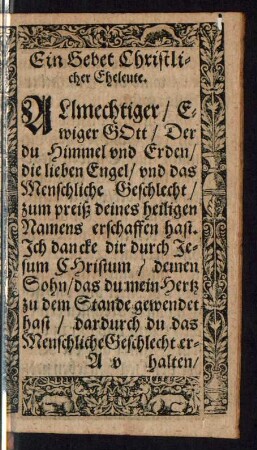 Ein Gebet Christli-
cher Eheleute.
ALlmechtiger / E-
wiger GOtt / Der
du Himmel vnd Erden /
die lieben Engel / vnd das
Menschliche Geschlecht /
zum preiß deines heiligen
Namens erschaffen hast.
Ich dancke dir durch Je-
sum CHristum / deinen
Sohn / das du mein Hertz
zu dem Stande gewendet
hast / dardurch du das
Menschliche Geschlecht er-
A v halten /